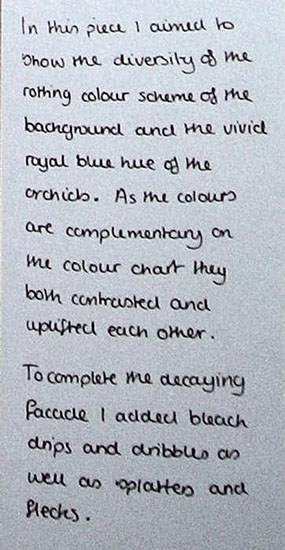 In this piece I aimed to
show the diversity of the
rotting colour scheme of the
background and the vivid
royal blue hue of the
orchids. As the colours
are complementary on
the colour chart they
both contrasted and
uplifted each other.
To complete the decaying
facade I added bleach
drips and dribbles as
well as splatters and
flecks.